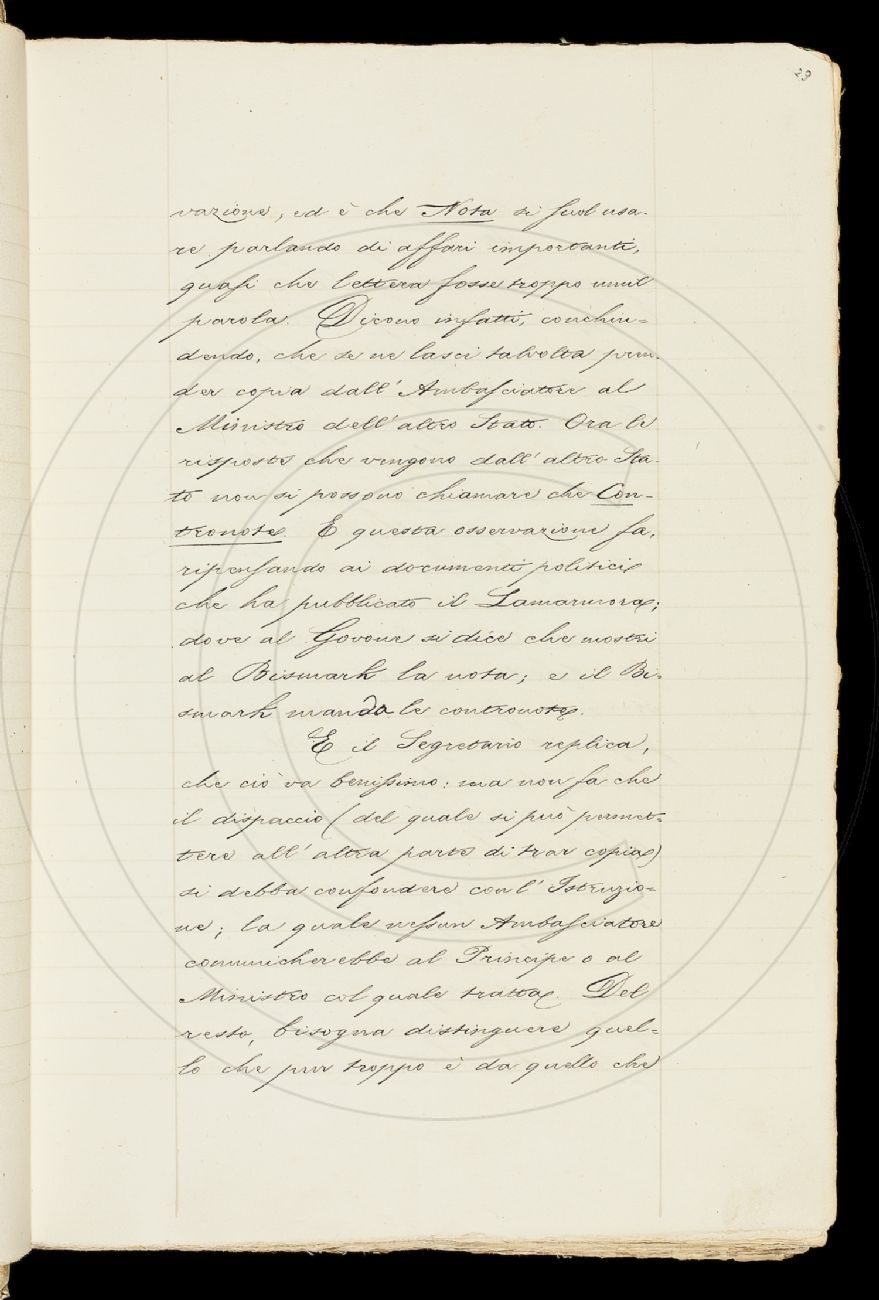 29
vazione, ed è che Nota si suol usa-
re parlando di affari importanti,
quasi che lettera fosse troppo umil
parola. Dicono infatti, conchiu=
dendo, che se ne lasci talvolta pren-
der copia dall' Ambasciatore al
Ministro dell' altro Stato. Ora le
risposte che vengono dall' altro Sta-
to non si possono chiamare che Con-
tronote. E questa osservazione fa,
ripensando ai documenti politici
che ha pubblicato il Lamarmora;
dove al Govone si dice che mostri
al Bismark la nota; e il Bi-
smark manda le contronote.
E il Segretario replica,
che ciò va benissimo: ma non fa che
il dispaccio (del quale si può permet=
tere all' altra parte di trar copia)
si debba confondere con l' Istruzio=
ne; la quale nessun Ambasciatore
comunicherebbe al Principe o al
Ministro col quale tratta. Del
resto, bisogna distinguere quel=
lo che pur troppo è da quello che